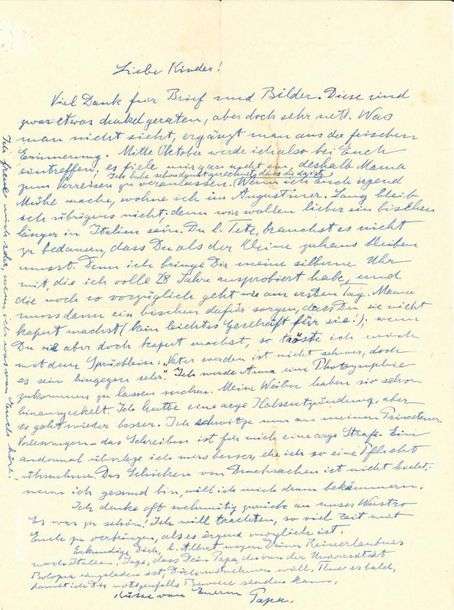 Liebe Kinder!
Viel Dank für Brief und Bilder. Diese sind
zwar etwas dunkel geraten, aber doch sehr nett. Was
man nicht sieht, ergänzt man aus der frischen
Erinnerung. Mitte Oktober werde ich also bei Euch
eintreffen, es fiele mir gar nicht ein, deshalb Mama
zum Verreisen zu veranlassen. Wenn ich Euch irgend
Mühe mache, wohne ich im Augustiner. Lang bleib
ich übrigens nicht, denn wir wollen lieber ein bischen
länger in Italien sein. Du l. Tete, brauchst es nicht
zu bedauern, dass Du als der Kleine zuhaus bleiben
musst. Denn ich bringe Dir meine silberne Uhr
mit, die ich volle 28 Jahre ausprobiert habe, und
die noch so vorzüglich geht wie am ersten Tag. Mama
muss dann ein bischen dafür sorgen, dass Du sie nicht
kaput machst (kein leichtes Geschäft für sie!); wenn
Du sie aber doch kaput machst, so tröste ich mich
mit dem Sprüchlein: "Vater werden ist nicht schwer, doch
es sein hingegen sehr." Ich werde Anna eine Photographie
zukommen zu lassen suchen. Meine Weiber haben sie schon
Ich hatte eine arge Halsentzündung, aber
es geht wieder besser. Ich an meinen Princetoner
Vorlesungen - das Schreiben ist für mich eine arge Strafe. Ein
andermal überlege ich mirs besser, ehe ich so eine Pflicht
übernehme. Das Schicken von Drucksachen ist nicht leicht.
wenn ich gesund bin, will ich mich drum bekümmern.
Ich denke oft zurück an unser Wustro
Es war zu schön! Ich will trachten, so viel Zeit mit
Euch zu verbringen, als es irgend möglich ist.
Erkundige Dich, l. Albert wegen Deines Reiseurlaubes
nach Italien. Sage, dass Dein Papa von der Universität
Bologna eingeladen sei, Dich mitnehmen will, Thue es bald,
damit ich Dir nötigenfalls Beweise senden kann.
Küsse von Euerm Papa.
Ich freue mich sehr, wenn ich was von Euch höre!